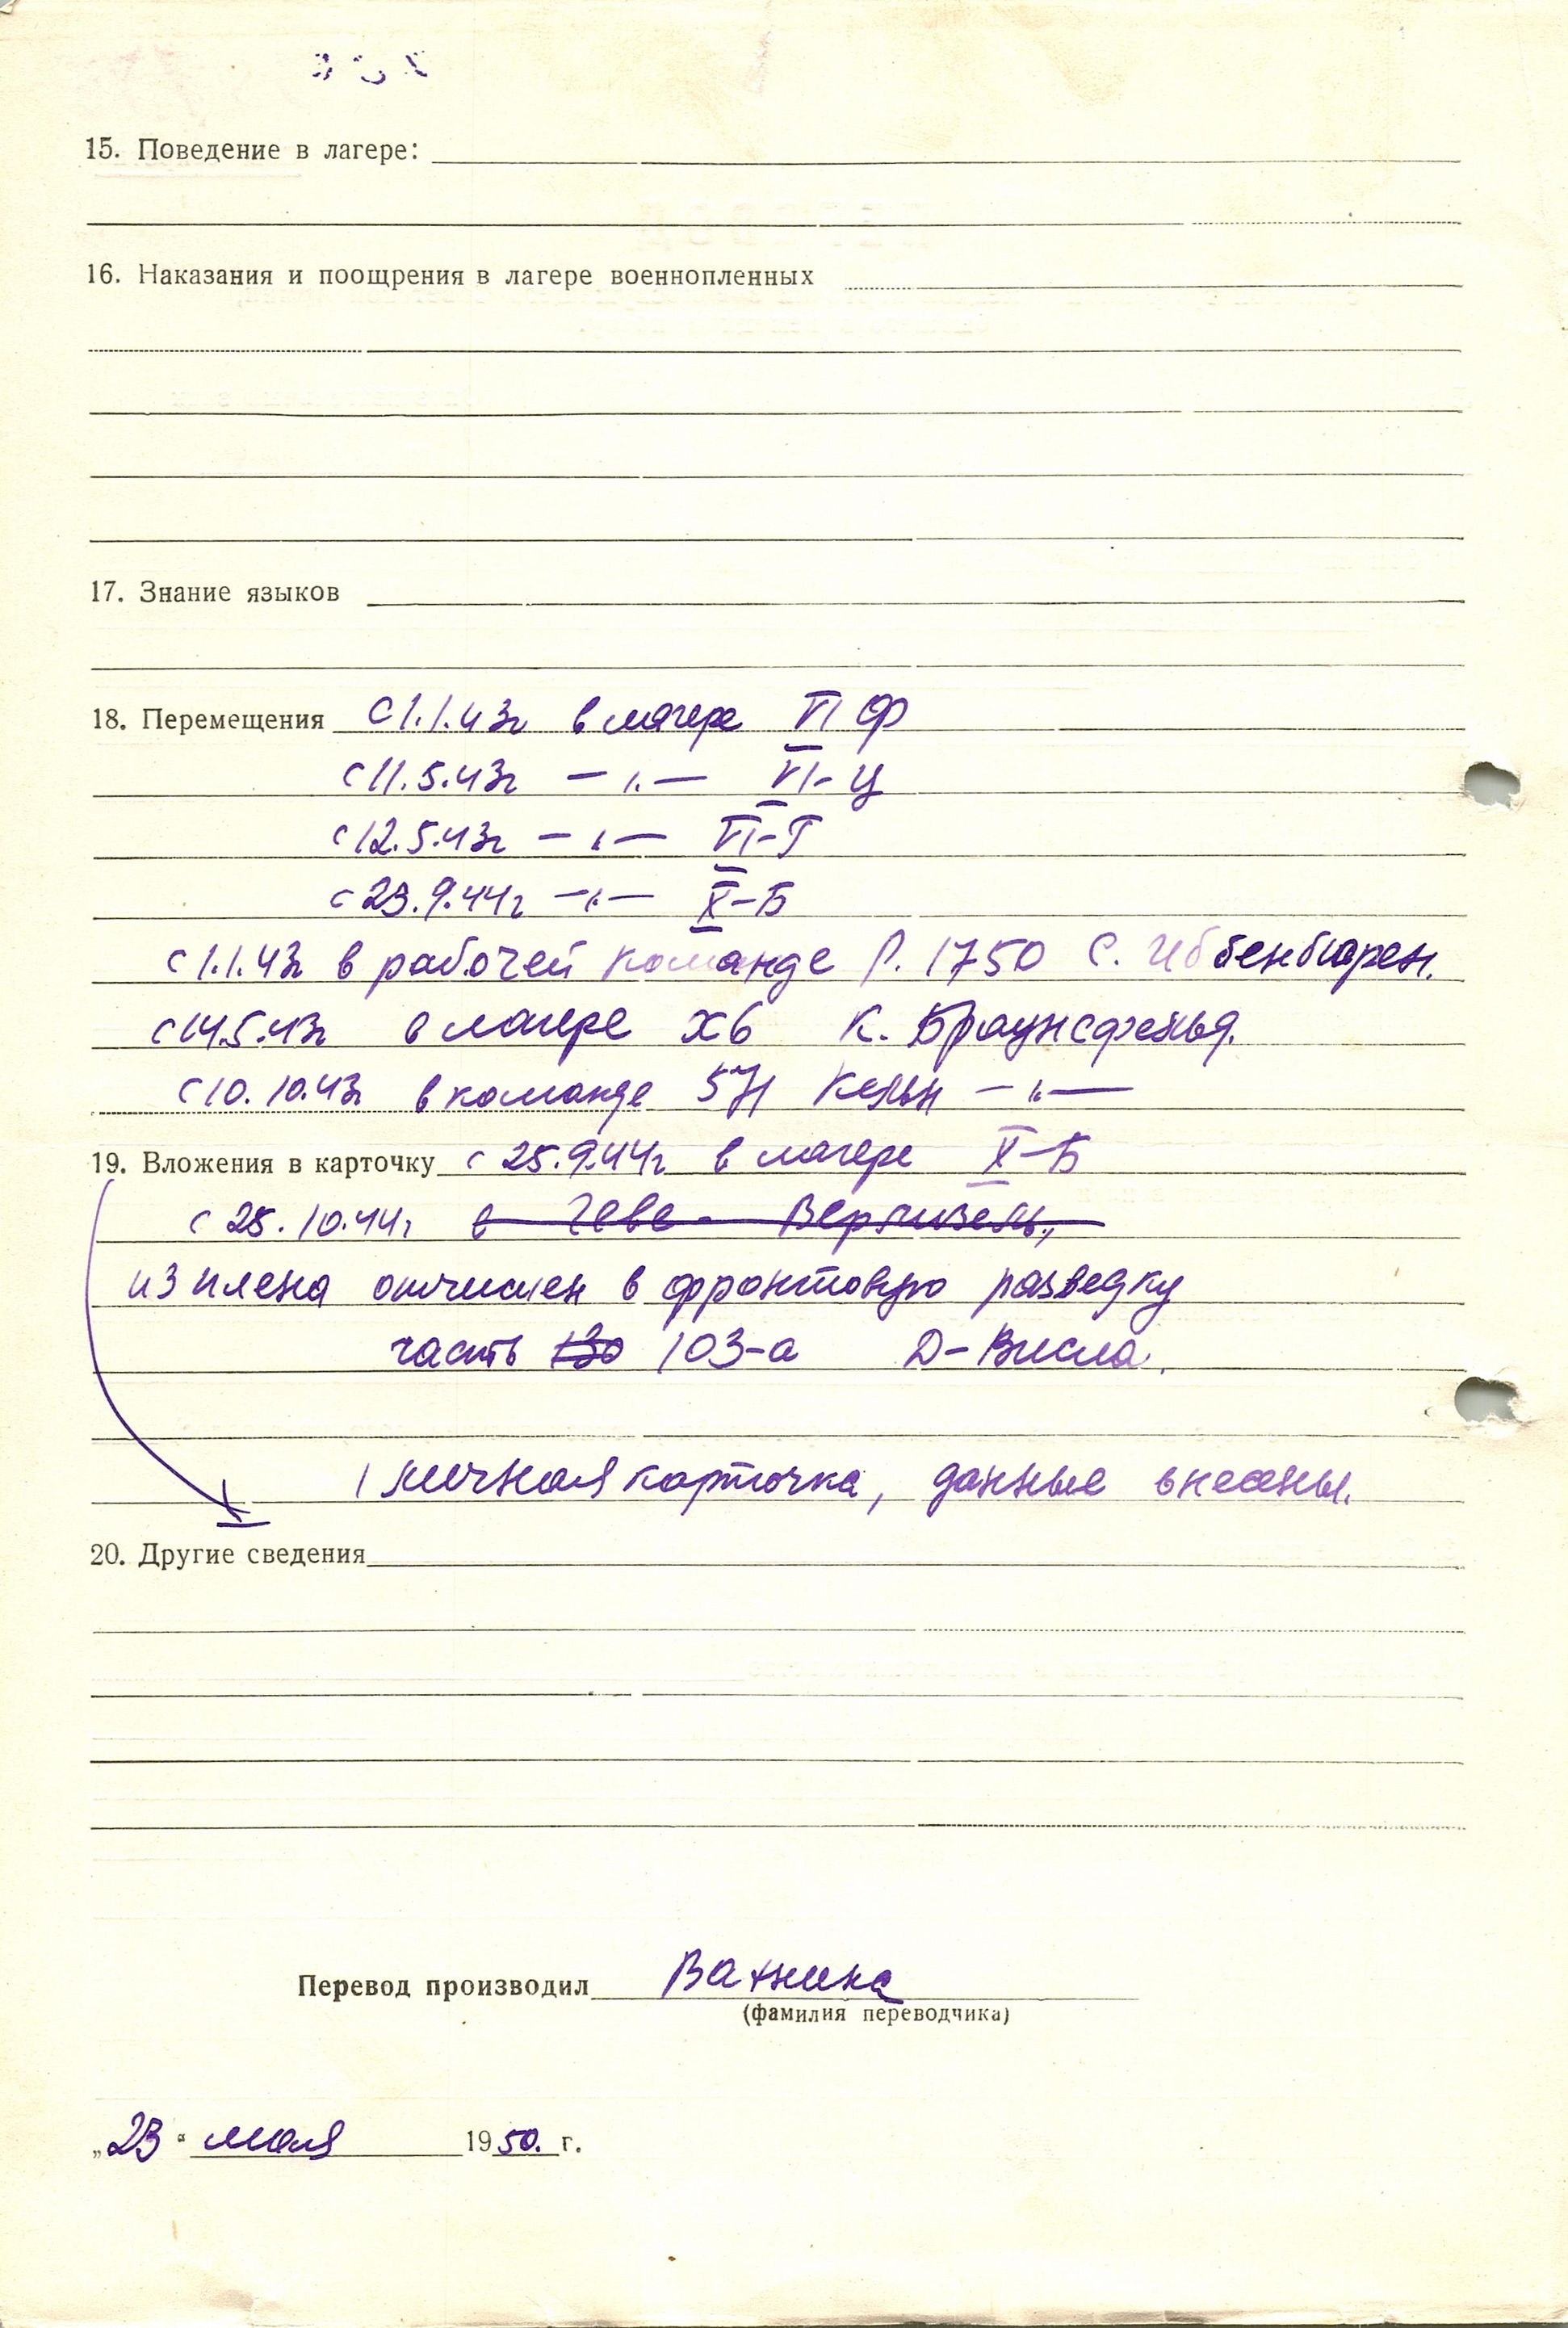 15. Поведение в лагере:
16. Наказания и поощрения в лагере военнопленных
17. Знание языков
18. Перемещения С 1.1.43г в лагере VI Ф
с 11.5.43г —〃— VI-Ц
с 12.5.43г —〃— VI-Г
с 23.9.44г —〃— X-Б
с 1.1.43г в рабочей команде Р. 1750 С. Иббенбюрен.
с 14.5.43г в лагере Х6 К. Браунсфельд.
с 10.10.43г в команде 571 Кельн —〃—
19. Вложения в карточку с 25.9.44г в лагере X-Б
с 25.10.44г в
из плена отчислен в фронтовую разведку
часть 130 103-а Д-Висла.
1 личная карточка, данные внесены.
20. Другие сведения
Перевод производил
(фамилия переводчика)
„23“ мая 1950. г.